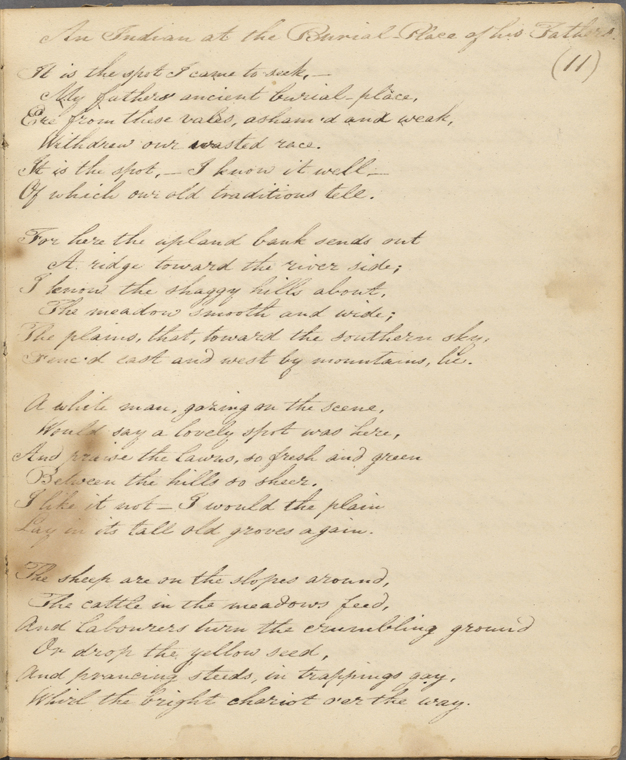 An Indian at the Burial-Place of his Fathers.
(11)
It is the spot I came to seek,—
My fathers' ancient burial-place,
Ere from these vales, asham'd and weak,
Withdrew our wasted race.
It is the spot,— I know it well—
Of which our old traditions tell.
For here the upland bank sends out
A ridge toward the river side;
I know the shaggy hills about,
The meadow smooth and wide;
The plains, that, toward the southern sky,
Fenc'd east and west by mountains, lie.
A white man, gazing on the scene,
Would say a lovely spot was here,
And praise the lawns, so fresh and green
Between the hills so sheer.
I like it not— I would the plain
Lay in its tall old groves again.
The sheep are on the slopes around,
The cattle in the meadows feed,
And labourers turn the crumbling ground
Or drop the yellow seed,
And prancing steeds, in trappings gay,
Whirl the bright chariot o'er the way.